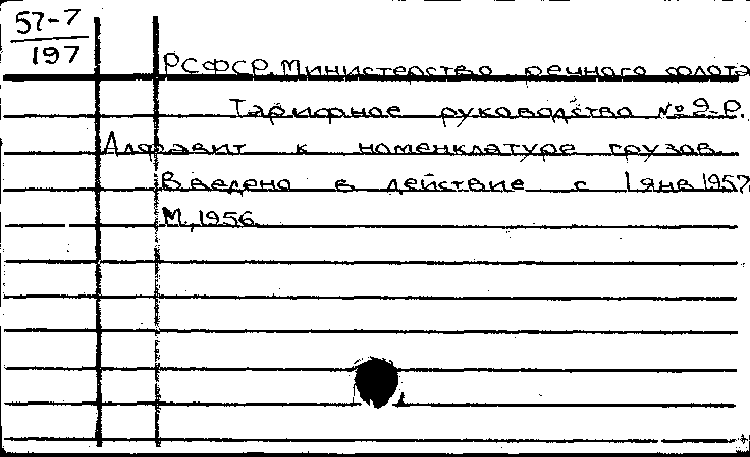 57-7
197
РСФСР. Министерство речного флота
Тарифное руководство №9-Р.
Алфавит к номенклатуре грузов.
Введено в действие с 1 янв 1957
М., 1956.